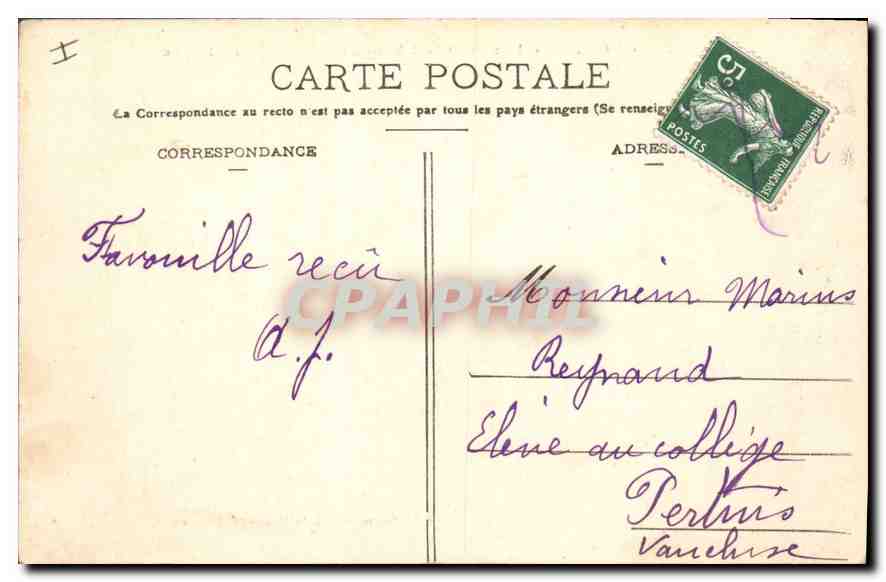 CARTE POSTALE
La Correspondance au recto n'est pas acceptée par tous les pays étrangers (Se renseign
CORRESPONDANCE
ADRESS
5c
REPUBLIQUE FRANÇAISE
POSTES
Favouille recû
a. J.
Monsieur Marius
Reynaud
Elève au collège
Pertuis
Vaucluse
CPAPHIL